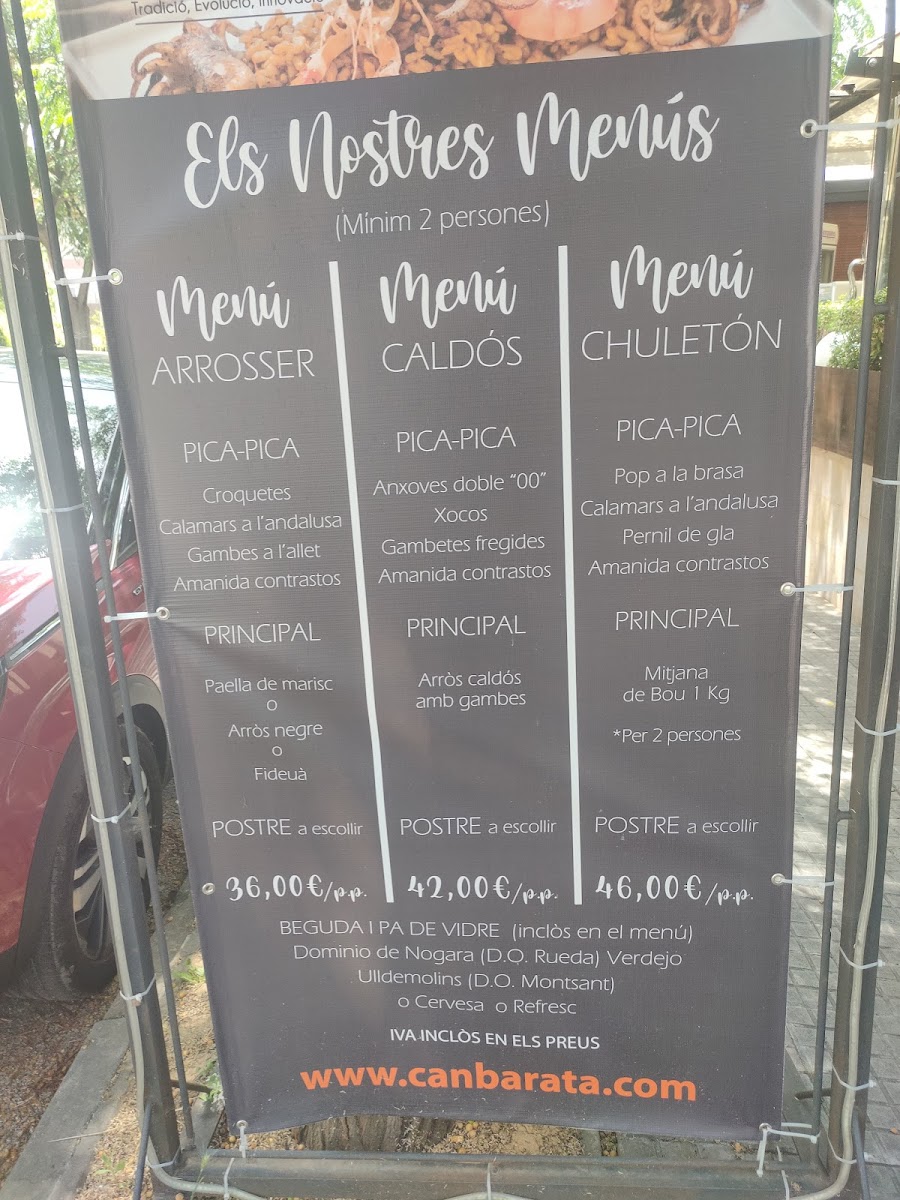 Tradició, Evolució, Innovació
Els Nostres Menús
(Mínim 2 persones)
Menú
ARROSSER
PICA-PICA
Croquetes
Calamars a l'andalusa
Gambes a l'allet
Amanida contrastos
PRINCIPAL
Paella de marisc
o
Arròs negre
o
Fideuà
POSTRE a escollir
36,00€/p.p.
Menú
CALDÓS
PICA-PICA
Anxoves doble "00"
Xocos
Gambetes fregides
Amanida contrastos
PRINCIPAL
Arròs caldós
amb gambes
POSTRE a escollir
42,00€/p.p.
Menú
CHULETÓN
PICA-PICA
Pop a la brasa
Calamars a l'andalusa
Pernil de gla
Amanida contrastos
PRINCIPAL
Mitjana
de Bou 1 Kg
*Per 2 persones
POSTRE a escollir
46,00€/p.p.
BEGUDA I PA DE VIDRE (inclòs en el menú)
Dominio de Nogara (D.O. Rueda) Verdejo
Ulldemolins (D.O. Montsant)
o Cervesa o Refresc
IVA INCLÒS EN ELS PREUS
www.canbarata.com